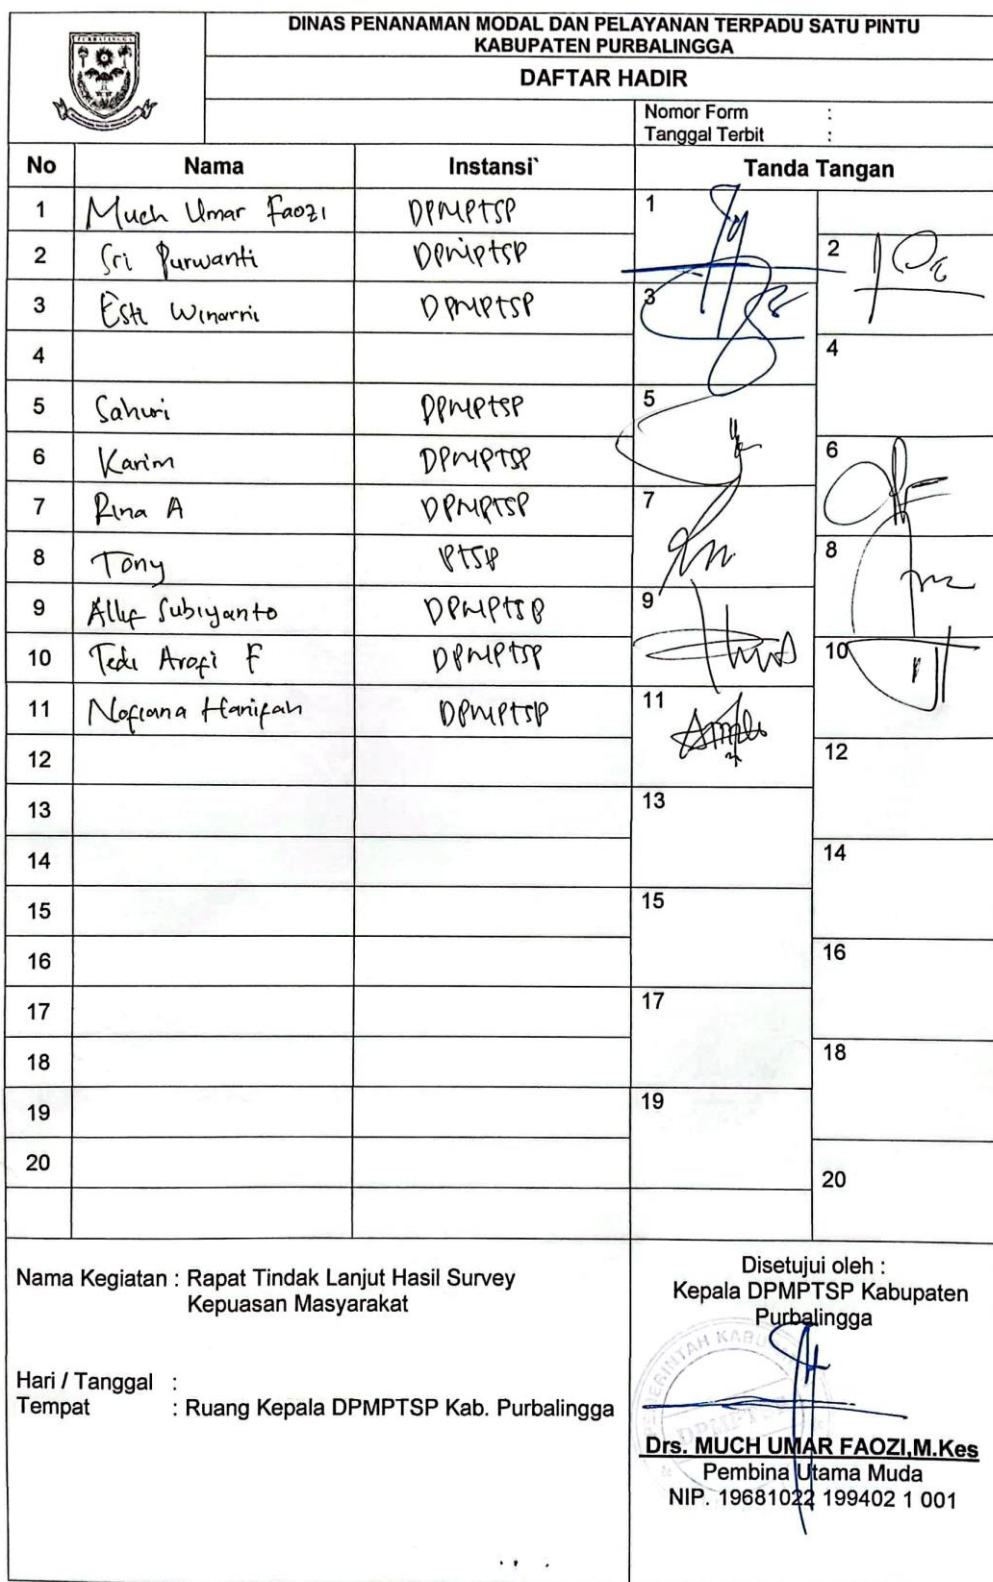 DINAS PENANAMAN MODAL DAN PELAYANAN TERPADU SATU PINTU
KABUPATEN PURBALINGGA
DAFTAR HADIR
Nomor Form :
Tanggal Terbit :
No Nama Instansi` Tanda Tangan
1 Much Umar Faozi DPMPTSP 1
2 Sri Purwanti DPMPTSP 2
3 Esti Winarni DPMPTSP 3
4 4
5 Sahuri DPMPTSP 5
6 Karim DPMPTSP 6
7 Rina A DPMPTSP 7
8 Tony PTSP 8
9 Allif Subiyanto DPMPTSP 9
10 Tedi Arofi F DPMPTSP 10
11 Nofiana Hanifah DPMPTSP 11
12 12
13 13
14 14
15 15
16 16
17 17
18 18
19 19
20 20
Nama Kegiatan : Rapat Tindak Lanjut Hasil Survey
Kepuasan Masyarakat
Hari / Tanggal :
Tempat : Ruang Kepala DPMPTSP Kab. Purbalingga
Disetujui oleh :
Kepala DPMPTSP Kabupaten
Purbalingga
Drs. MUCH UMAR FAOZI,M.Kes
Pembina Utama Muda
NIP. 19681022 199402 1 001